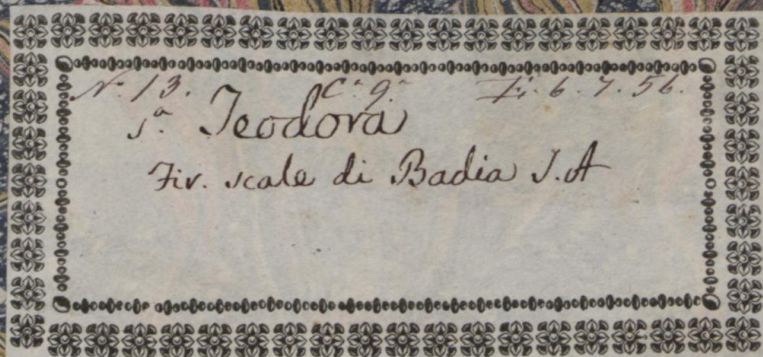 N.º 13. C.ª 9.ª F. 6. 7. 56.
S.ª Teodora
Fir. scale di Badia S. A